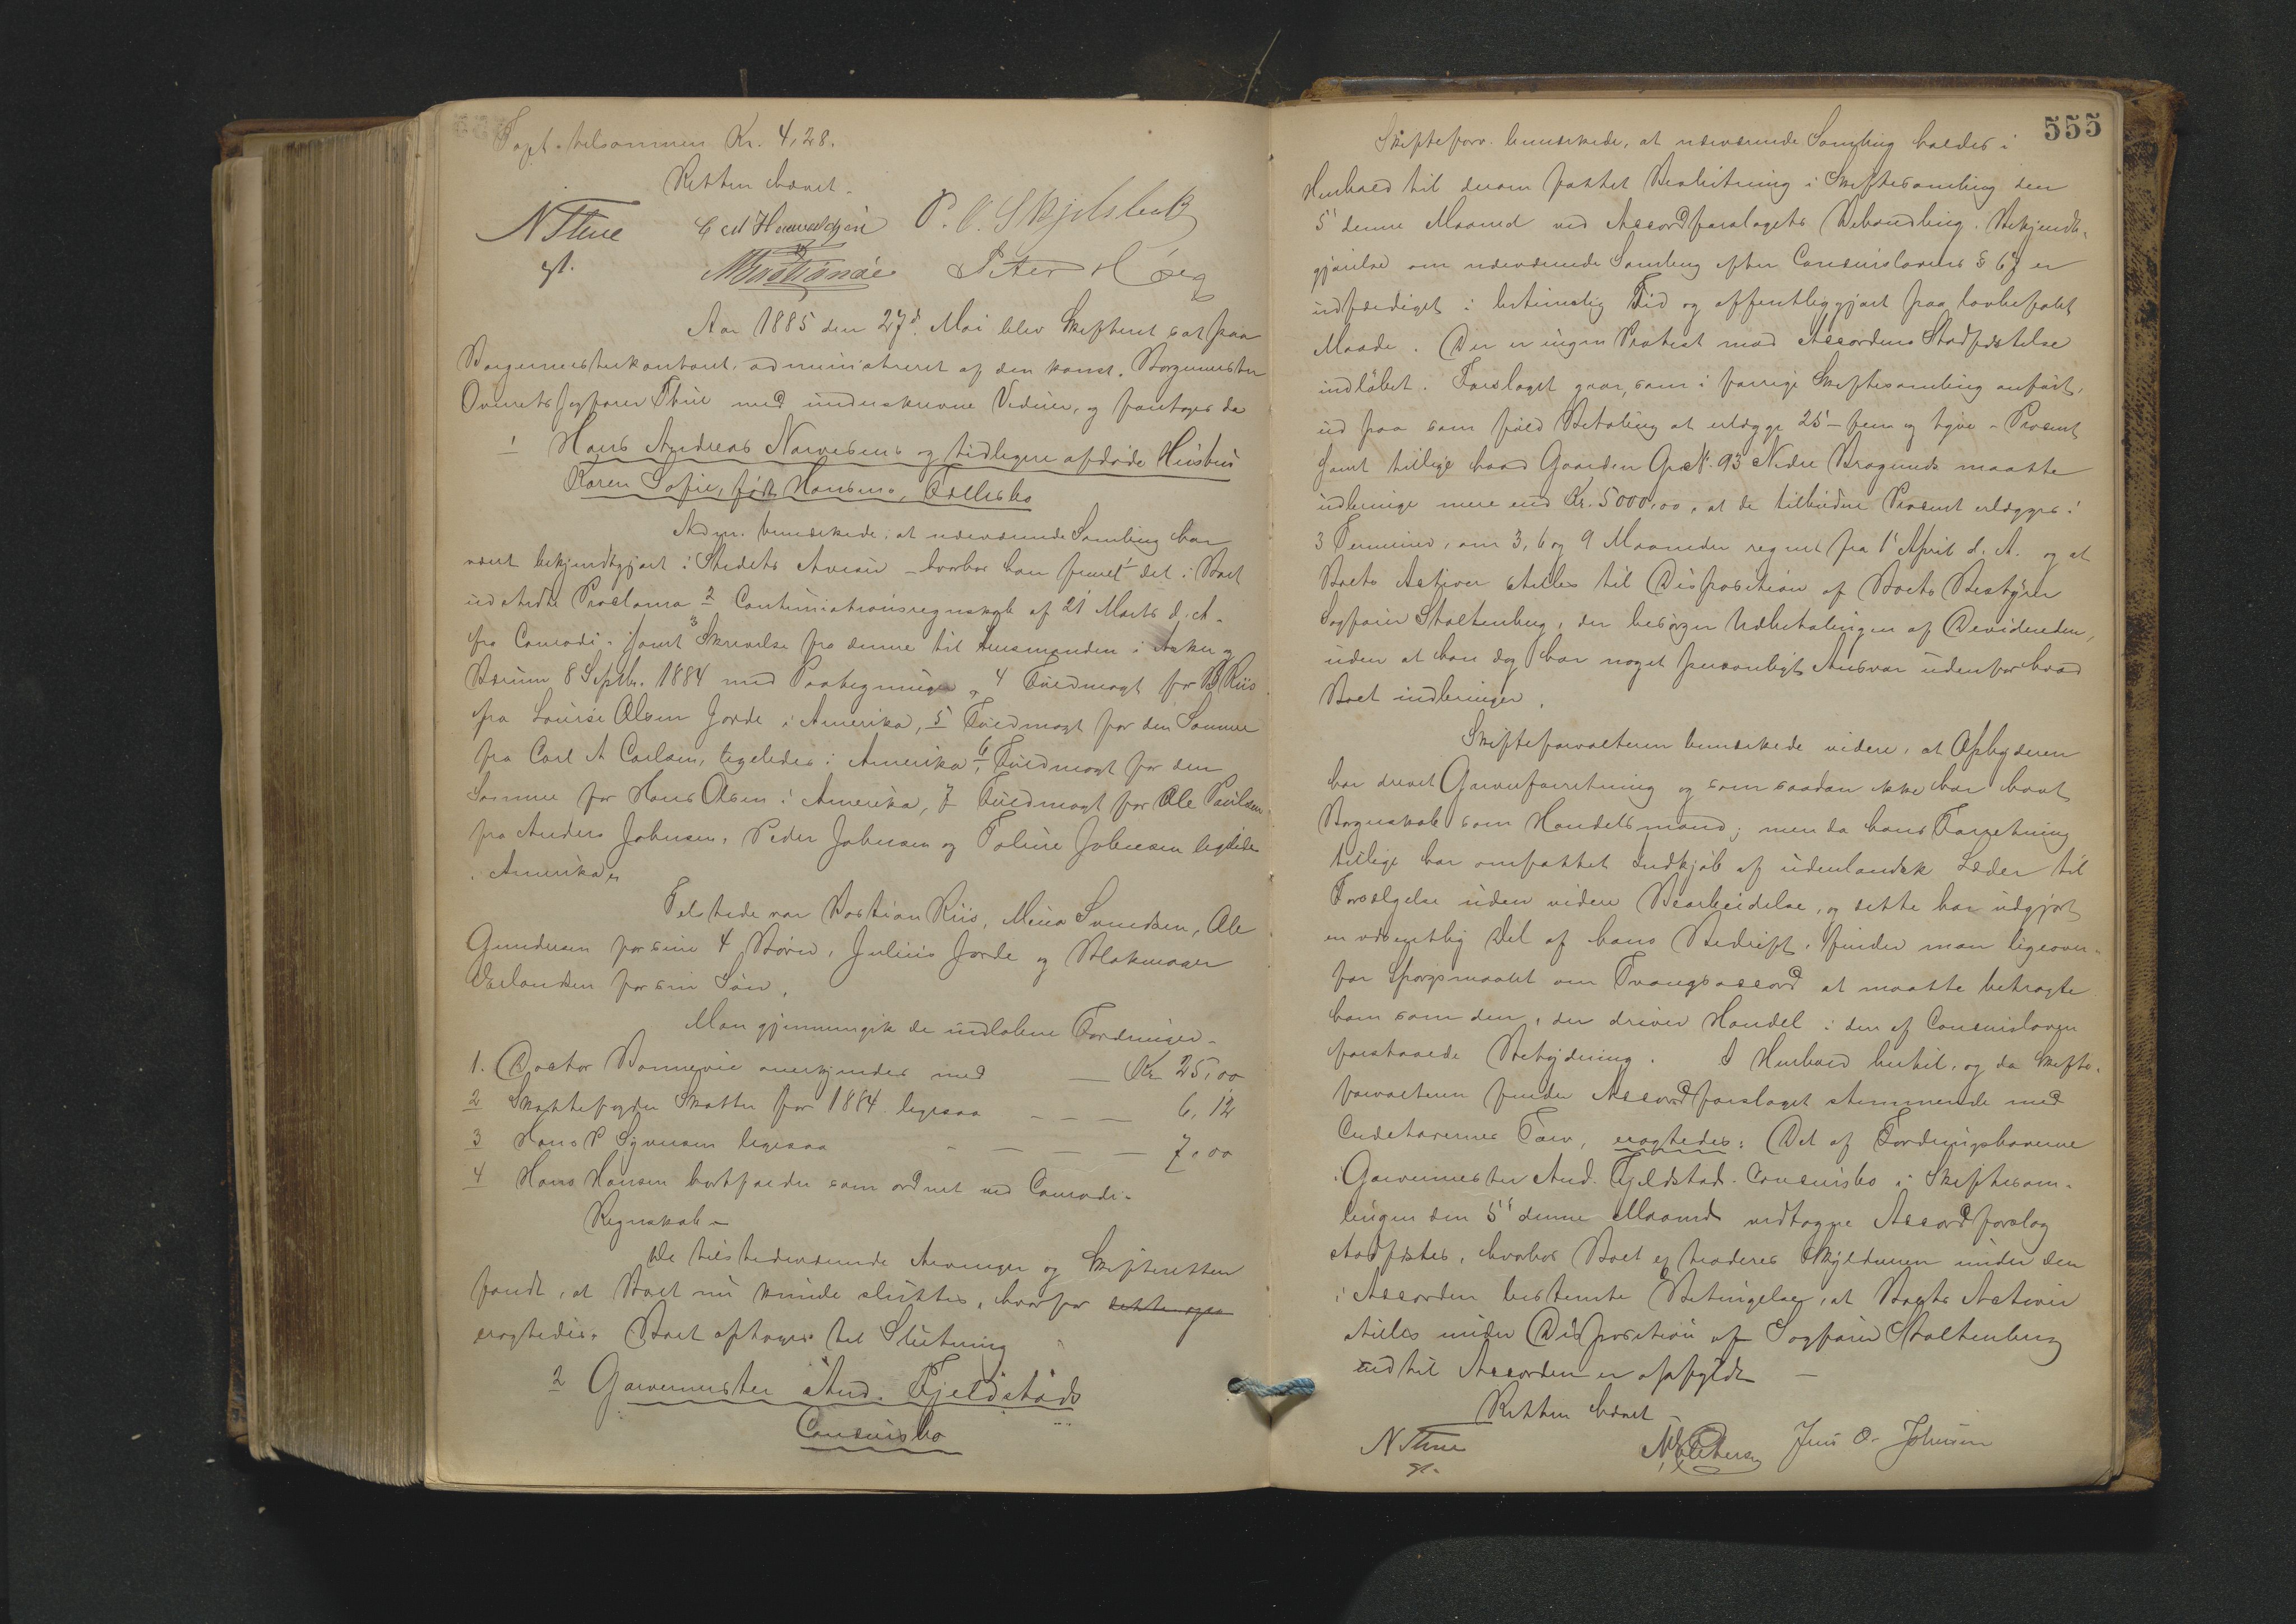 Tapt. tilsammen Kr. 4,28.
Retten hævet.
N Thue P. O. Skjelsbek
gt. Peter Høeg
Aar 1885 den 27d. Mai blev Skifteret sat paa
Borgermesterkontoret, administreret af den const. Borgermester
Overretssagfører Thue med underskrevne Vidner, og foretoges da
1 Hans Andreas Narvesens og tidligere afdøde Hustru
Karen Sofie, født Hansens, Fællesbo
Adm. bemærkede, at nærværende Samling har
været bekjendtgjort i Stedets Aviser – hvorhos han fremel. 1 det i Boet
udstedte Proclama 2 Continuationsregnskab af 21 Marts d. A.
fra Conradi – samt 3 Skrivelse fra denne til Lensmanden i Asker og
Bærum 8 Septb. 1884 med Paategning, 4 Fuldmagt for B Riis
fra Louise Olsen Jorde i Amerika, 5 Fuldmagt for den Samme
fra Carl A Carlsen, ligeledes i Amerika, 6 Fuldmagt for den
Samme for Hans Olsen i Amerika, 7 Fuldmagt for Ole Paulsen
fra Anders Johnsen, Peder Johnsen og Toline Johnsen ligeledes
i Amerika.
Tilstede var Bastian Riis, Mina Svendsen, Ole
Gundersen for sine 4 Børn, Julius Jorde og Blokmager
Værlandsen for sin Søn.
Man gjennemgik de indløbne Fordringer.
1. Doctor Bonnevie anerkjendes med — Kr 25,00
2 Skattefogden Skatter for 1884 ligesaa — — — 6,12
3 Hans P Syversen ligesaa — — — — 7,00
4 Hans Hansen bortfalder som ordnet ved Conradi's
Regnskab –
De tilstedeværende Arvinger og Skifteretten
fandt, at Boet nu kunde sluttes, hvorfor
eragtedes: Boet optages til Slutning
2 Garvermester And. Fjeldstads
Concursbo
555
Skifteforv. bemærkede, at nærværende Samling holdes i
Henhold til derom fattet Beslutning i Skiftesamling den
5' denne Maaned ved Accordforslagets Behandling. Bekjendt-
gjørelse om nærværende Samling efter Concurslovens § 67 er
udfærdiget i betimelig Tid og offentliggjort paa lovbefalet
Maade. Der er ingen Protest mod Accordens Stadfæstelse
indløbet. Forslaget gaar, som i forrige Skiftesamling anført,
ud paa som fuld Betaling at erlægge 25 – fem og tyve – Procent
samt tillige hvad Gaarden Gr. N. 93 Nedre Bragernes maatte
udbringe mere end Kr. 5000,00, at de tilbudne Procent erlægges i
3 Terminer, om 3, 6 og 9 Maaneder regnet fra 1' April d. A. og at
Boets Activer stilles til Disposition af Boets Bestyrer
Sagfører Stoltenberg, der besørger Udbetalingen af Devidenden,
uden at han dog har noget personligt Ansvar udenfor hvad
Boet indbringer.
Skifteforvalteren bemærkede videre, at Opbyderen
har drevet Garverforretning og som saadan ikke har havt
Borgerskab som Handelsmand; men da hans Forretning
tillige har omfattet Indkjøb af udenlandsk Læder til
Forsælgelse uden videre Bearbeidelse, og dette har udgjort
en væsentlig Del af hans Bedrift, finder man ligeover-
for Spørgsmaalet om Tvangsaccord at maatte betragte
ham som den, der driver Handel i den af Concursloven
forstaaede Betydning. I Henhold hertil, og da Skifte-
forvalteren finder Accordforslaget stemmende med
Creditorernes Tarv, eragtedes: Det af Fordringshaverne
i Garvermester And. Fjeldstads Concursbo i Skiftesam-
lingen den 5' denne Maaned vedtagne Accordforslag
stadfæstes, hvorhos Boet extraderes Skyldneren under den
i Accorden bestemte Betingelse, at Boets Activer
stilles under Disposition af Sagfører Stoltenberg
indtil Accorden er opfyldt –
Retten hævet
N Thue Jens O. Johnsen
gt.